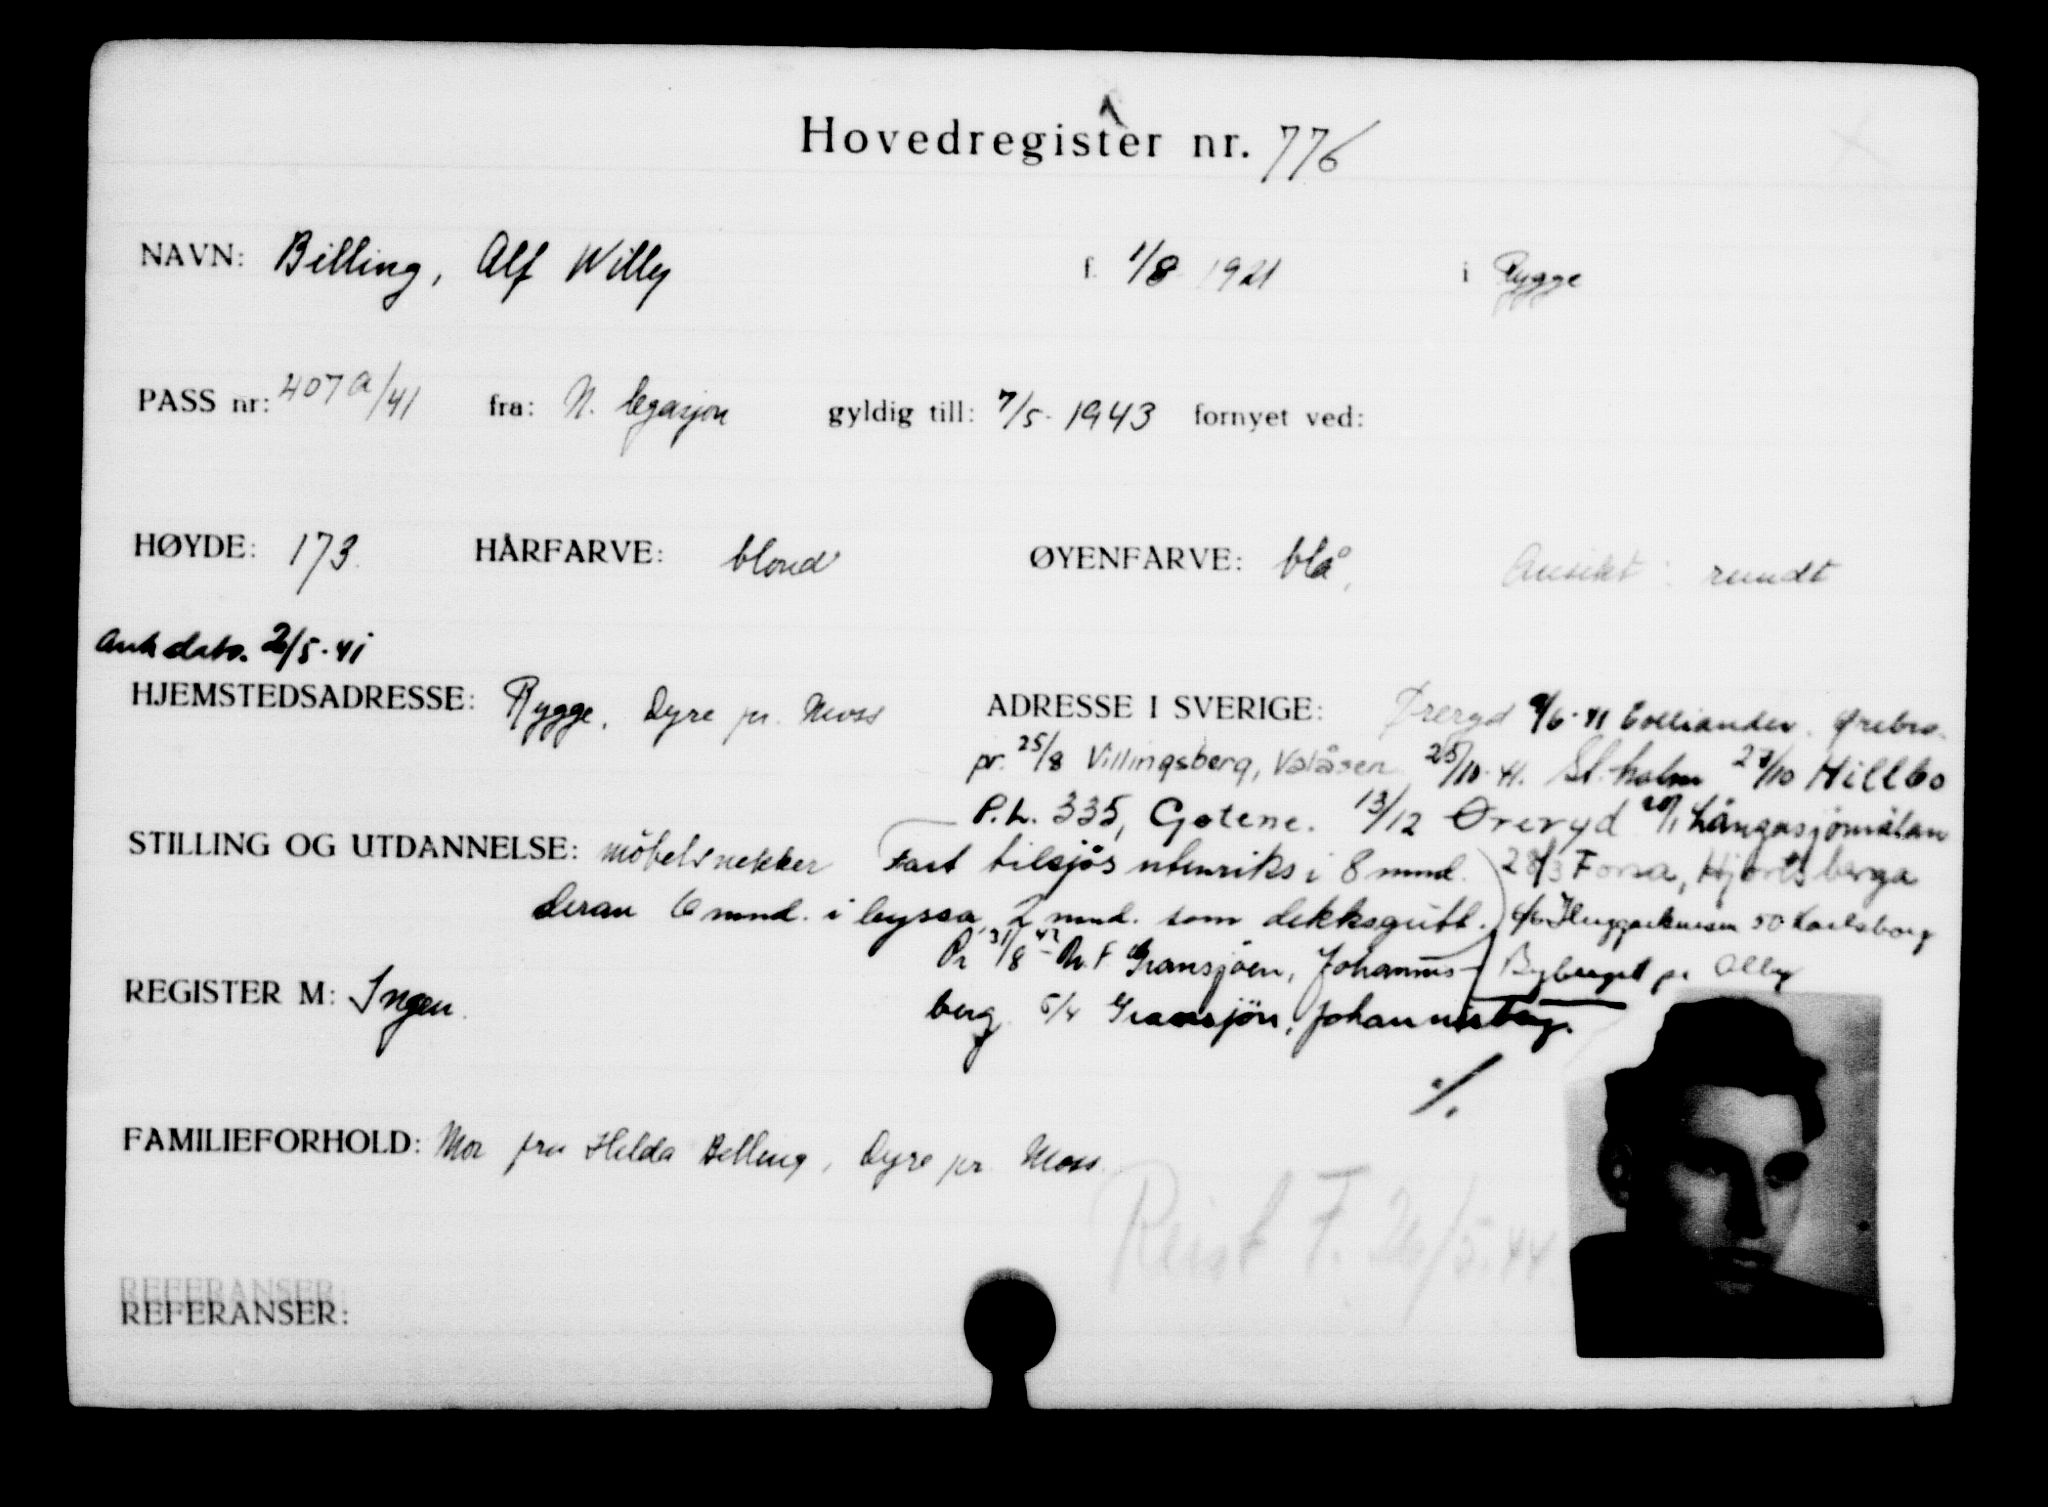 Hovedregister nr. 776
NAVN: Billing, Alf Willy f. 1/8 1921 i Rygge
PASS nr: 407a/41 fra: N. legasjon gyldig till: 7/5- 1943 fornyet ved:
HØYDE: 173. HÅRFARVE: blond ØYENFARVE: blå, Ansikt: rundt
Ank dato. 2/5-41
HJEMSTEDSADRESSE: Rygge, Dyre pr. Moss ADRESSE I SVERIGE: Øreryd 9/6-41 Colliander. Ørebro.
pr. 25/8 Villingsberg, Valåsen 25/10-41. St. holm 27/10 Hillbo
P.L. 335, Gøtene. 13/12 Øreryd 20/1 Långasjömålan
STILLING OG UTDANNELSE: möbelsnekker Fart tilsjøs utenriks i 8 mnd. 28/3 Forsa, Hjortsberga
derav 6 mnd. i byssa, 2 mnd. som dekksgutt. 50 Karlsborg
Pr 31/8-42 Gransjöen, Johannis- Byberget pr Alby
REGISTER M: Ingen. berg. 5/4 Gransjön, Johannisberg.
./.
FAMILIEFORHOLD: Mor fru Hilda Billing, Dyre pr. Moss.
Reist F. 26/5.44
REFERANSER:
REFERANSER: